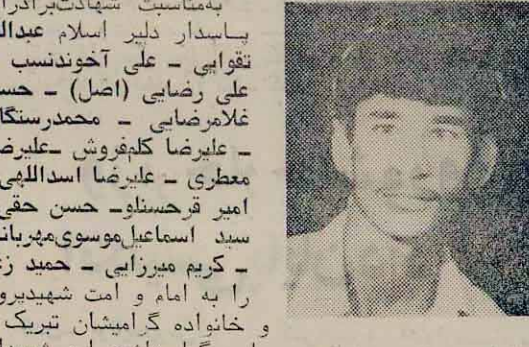 به‌مناسبت شهادت‌برادرا
پاسدار دلیر اسلام عبدالل
تقوایی ـ علی آخوندنسب
علی رضایی (اصل) ـ حس
غلامرضایی ـ محمدرستگا
ـ علیرضا کلم‌فروش ـعلیرض
معطری ـ علیرضا اسداللهی
امیر قرحسنلو‌ـ حسن حقی
سید اسماعیل‌موسوی‌مهربان
ـ کریم میرزایی ـ حمید ز
را به امام و امت شهیدپرو
و خانواده گرامیشان تبریک